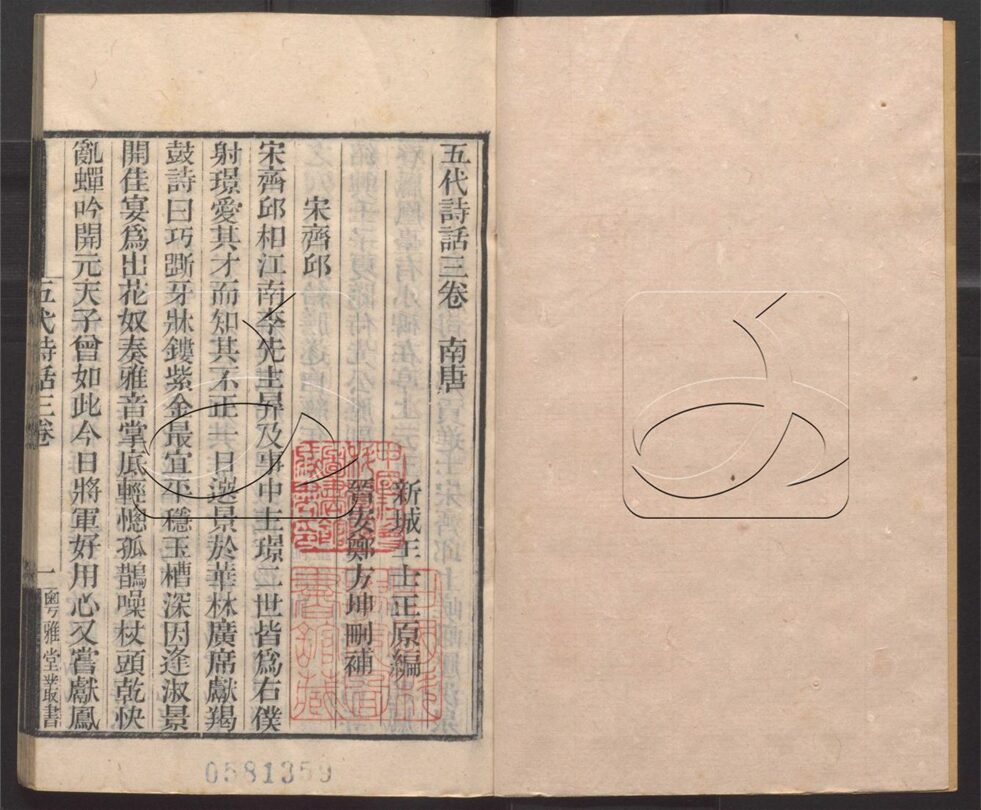 五代詩話三卷 南唐
新城王士正原編
晉安鄭方坤刪補
宋齊邱
宋齊邱相江南李先主昪及事中主璟二世皆爲右僕
射璟愛其才而知其不正一日選景於華林廣席獻羯
鼓詩曰巧斲牙牀鏤紫金最宜平穩玉槽深因逢淑景
開佳宴爲出花奴奏雅音掌底輕憁孤鵲噪杖頭乾快
亂蟬吟開元天子曾如此今日將軍好用心又嘗獻鳳
五代詩話三卷
一
粵雅堂叢書
0581359